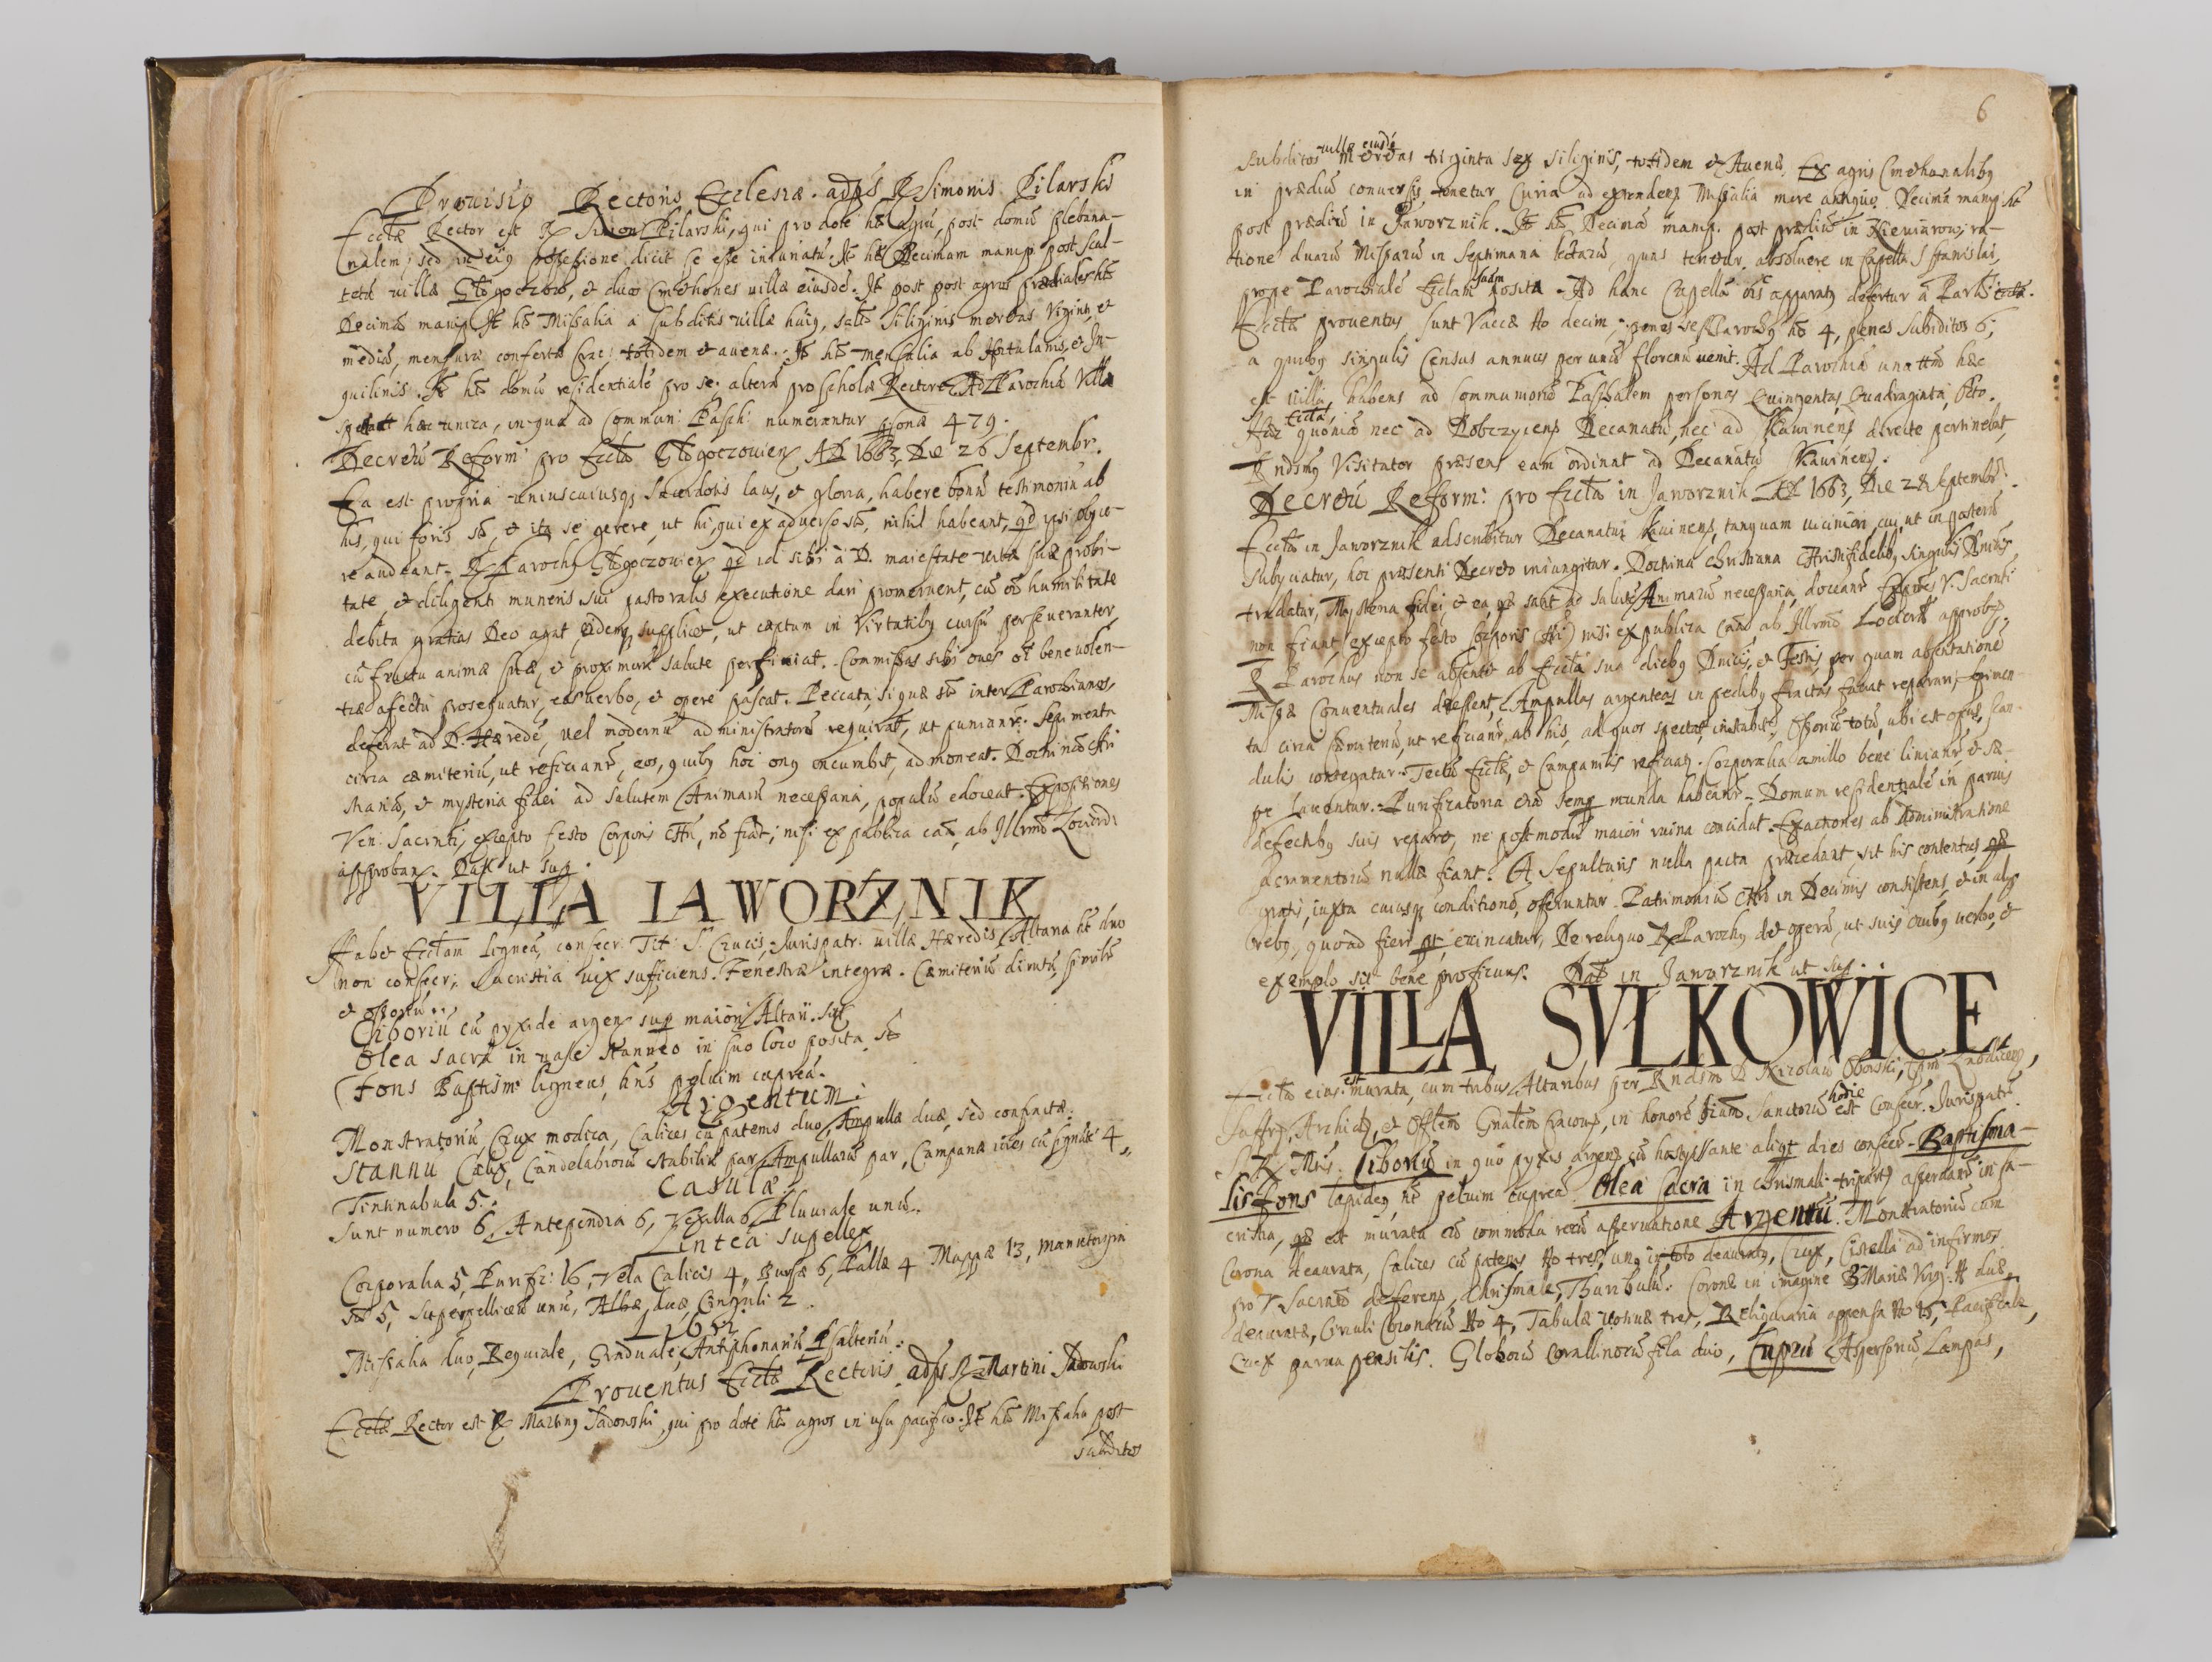 Prouisio Rectoris Ecclesiæ. adp̃s R. Simonis Pilarski
Eccłæ Rector est R. Simon Pilarski, qui pro dote ht̃ agrũ, post domũ plebana-
nalem; sed in eiq possessione dicit se esse iniuriatũ. It̃ ht̃ Decimam manip. post scul-
tetũ villæ Głogoczow, et duos Cmethones villæ eiusdẽ. It̃ post post agros prædiales ht̃
Decimã manip. It̃ ht̃ Missalia a subditis villæ huiq, Siliginis metretas Viginti, et
mediã, mensuræ confertæ Crac: totidem et auenæ. It̃ ht̃ mensalia ab Hortulanis, et In-
quilinis. It̃ ht̃ domũ residentialẽ pro se: alterã pro scholæ Rectore. Ad Parochiã Villa
spectat hæc unica, in qua ad Commun: Pasch: numerantur psonæ 479.
Decretũ Reform: pro Eccła Głogoczouien AD 1663, Die 26 Septembr.
Ea est propria uniuscuiusq Sacerdotis laus, et gloria, habere bonũ testimoniũ ab
his, qui foris st̃, et ita se gerere, ut hi, qui ex aduerso st̃, nihil habeant, qd ipsi obijce-
re audeant. R. Parochq Głogoczouien qd id sibi à D. maiestate vitæ suæ probi-
tate, et diligenti muneris sui pastoralis executione dari promeruent, cũ oĩ humilitate
debita gratias Deo agat eidemq supplicet, ut cæptum in Virtutibq cursũ perseueranter,
cũ fructu animæ suæ, et proximorũ salute perficiat. Commissas sibi oues oĩ beneuolen-
tiæ afectu prosequatur, eas verbo, et opere pascat. Peccata, si quæ st̃ inter Parochianos,
deferat ad D. Hæredẽ, vel modernũ administratorẽ requirat, ut puniantr̃. Sepimenta
circa cæmiteriũ, ut reficiantr̃, eos, quibq hoc onq incumbit, admoneat. Doctrinã Chri
stianã, et mysteria fidei ad salutem Animarũ necessaria, populũ edoceat. Expositiones
Ven: Sacrnti, excepto festo Corporis Chri, nõ fiãt; nisi ex publica cãa, ab Illrmo Loci ordi
approban. Dat̃ ut sup.
VILLA IAWORZNIK
Habet Eccłam ligneã, consecr: Tit: S. Crucis, Jurispatr: villæ Hæredis, Altaria ht̃ duo
non consecr; Sacristia vix sufficiens. Fenestræ integræ. Cæmiteriũ dirutũ, similr̃
et ossoriũ.
Ciboriũ cũ pyxide argen sup maiori Altari sit̃
Olea sacra in vase stanneo in suo loco posita st̃
Fons Baptism: ligneus, hñs peluim cupreã.
Argentum.
Monstratoriũ, Crux modica, Calices cũ patenis duo, Ampullæ duæ, sed confractæ.
Stannũ Calix, Candelabrorũ stabiliũ par, Ampullarũ par, Campanæ cũ signat: 4,
Tintinabula 5.
Casulæ
Sunt numero 6, Antependia 6, Vexilla 6, Pluuiale unũ.
Lintea supellex
Corporalia 5, Purific: 16, Vela Calicis 4, Bursæ 6, Pallæ 4 Mappæ 13, Manutergia
No 5, Superpelliceũ unũ, Albæ, duæ, Cinguli 2.
Libri
Missalia duo, Requiale, Graduale, Antiphonariũ, Psalteriũ.
Prouentus Eccłæ Rectoris. adp̃s R. Martini Sadowski
Eccłæ Rector est R. Martinq Sadowski, qui pro dote ht̃ agros in usu pacifico. It̃ ht̃ Missalia post
subditos
6
subditos villæ eiusdẽ metretas triginta sex siliginis, totidem et Auenæ. Ex agris Cmethonalibq
in prædiũ conuersis, tenetur Curia ad extendens Missalia more antiquo. Decimã manip ht̃
post prædiũ in Jaworznik. It̃ ht̃ Decimã manip. post prædiũ in Kieviarow, ra-
tione duarũ Missarũ in Septimana lectarũ, quas tenetur absoluere in Capella S Stanislai,
prope Parochialẽ Eccłam suam posita. Ad hanc Capellã oĩs apparatq defertur à Parli Eccła.
Eccłæ prouentus sunt Vaccæ No decim; penes se Parochq ht̃ 4, penes Subditos 6;
a quibq singulis Census annuus per unũ florenũ uenit. Ad Parochiã una ttm̃ hæc
est villa, habens ad Communionẽ Paschalem personas Quingentas Quadraginta, Octo.
Hæc Eccła, quoniã nec ad Dobczycens Decanatũ, nec ad Skawinens directe pertinebat,
Rndsmq Visitator præsens eam ordinat ad Decanatũ Skauinens.
Decretũ Reform: pro Eccła in Jaworznik AD 1663, Die 28 Septembr.
Eccła in Jaworznik adscribitur Decanatui Skauinens, tanquam viciniori, cui, ut in posterũ
subijciatur, hoc præsenti Decreto iniungitur. Doctrina christiana Christifidelibq singulis Dnicis,
tradatur, Mysteria fidei, et ea, quæ sunt ad salutẽ Animarũ necessaria, doceantr̃. Expõnes V. Sacrnti
non fiant, excepto festo Corporis Chri, nisi ex publica Cãa ab Illrmo Loci ordi approbq.
R. Parochus non se absentet ab Eccła sua diebq Dnicis, et Festis, per quam absentationẽ
Missæ Conuentuales deessent. Ampullas argenteas in pedibq fractas faciat reparari, sepimen-
ta circa Cæmiteriũ, ut reficiantr̃, ab his, ad quos spectat, instabit. Chorũ totũ, ubi est opus, scan-
dulis contegatur. Tectũ Eccłæ, et Campanilis reficiatq. Corporalia amillo bene liniantr̃, et sæ-
pe lauentur. Purificatoria etiã semp munda habeantr̃. Domum residentialẽ in paruis
defectibq suis reparet, ne postmodũ maiori ruina concidat. Exactiones ab Administratione
Sacramentorũ nullæ fiant. A Sepulturis nulla pacta præcedant, sit his contentus, quæ
gratis, iuxta cuiusq conditionẽ, offeruntur. Patrimoniũ Chri in Decimis consistens, et in alijs
rebq, quoad fieri pt, euincatur. De reliquo R. Parochq det operã, ut suis ouibq verbo, et
exemplo sit bene proficuus. Dat̃ in Jaworznik ut sup.
VILLA SVLKOWICE
Eccła eius est murata, cum tribus Altaribus per Rndsm D. Nicolaũ Oborski, Epm Laodicens,
Suffrag, Archid, et Offlem Gñalem Cracouien, in honorẽ oium Sanctorũ hodie est Consecr. Jurispatr:
S. R. Mtis. Ciboriũ in quo pyxis argen cũ hostijs ante aliqt dies consecr. Baptisma-
lis Fons lapideq, ht̃ peluim cupreã. Olea Sacra in chrismali tripart: asseruantr̃ in Sa-
cristia, quæ est murata et commoda rerũ asseruatione. Argentũ. Monstratoriũ cum
Corona deaurata, Calices cũ patenis No tres, unq in toto deauratq, Crux, Cistella ad infirmos
pro V. Sacrnto deferens, Chrismale, Thuribulũ. Coronæ in imagine B Mariæ Virg: No duæ,
deauratæ, Circuli Coronarũ No 4, Tabulæ votiuæ tres, Reliquiaria appensa No 15, Pacificale,
Crux parua pensilis. Globorũ Corallinorũ fila duo, Cuprũ Aspersoriũ, Lampas,